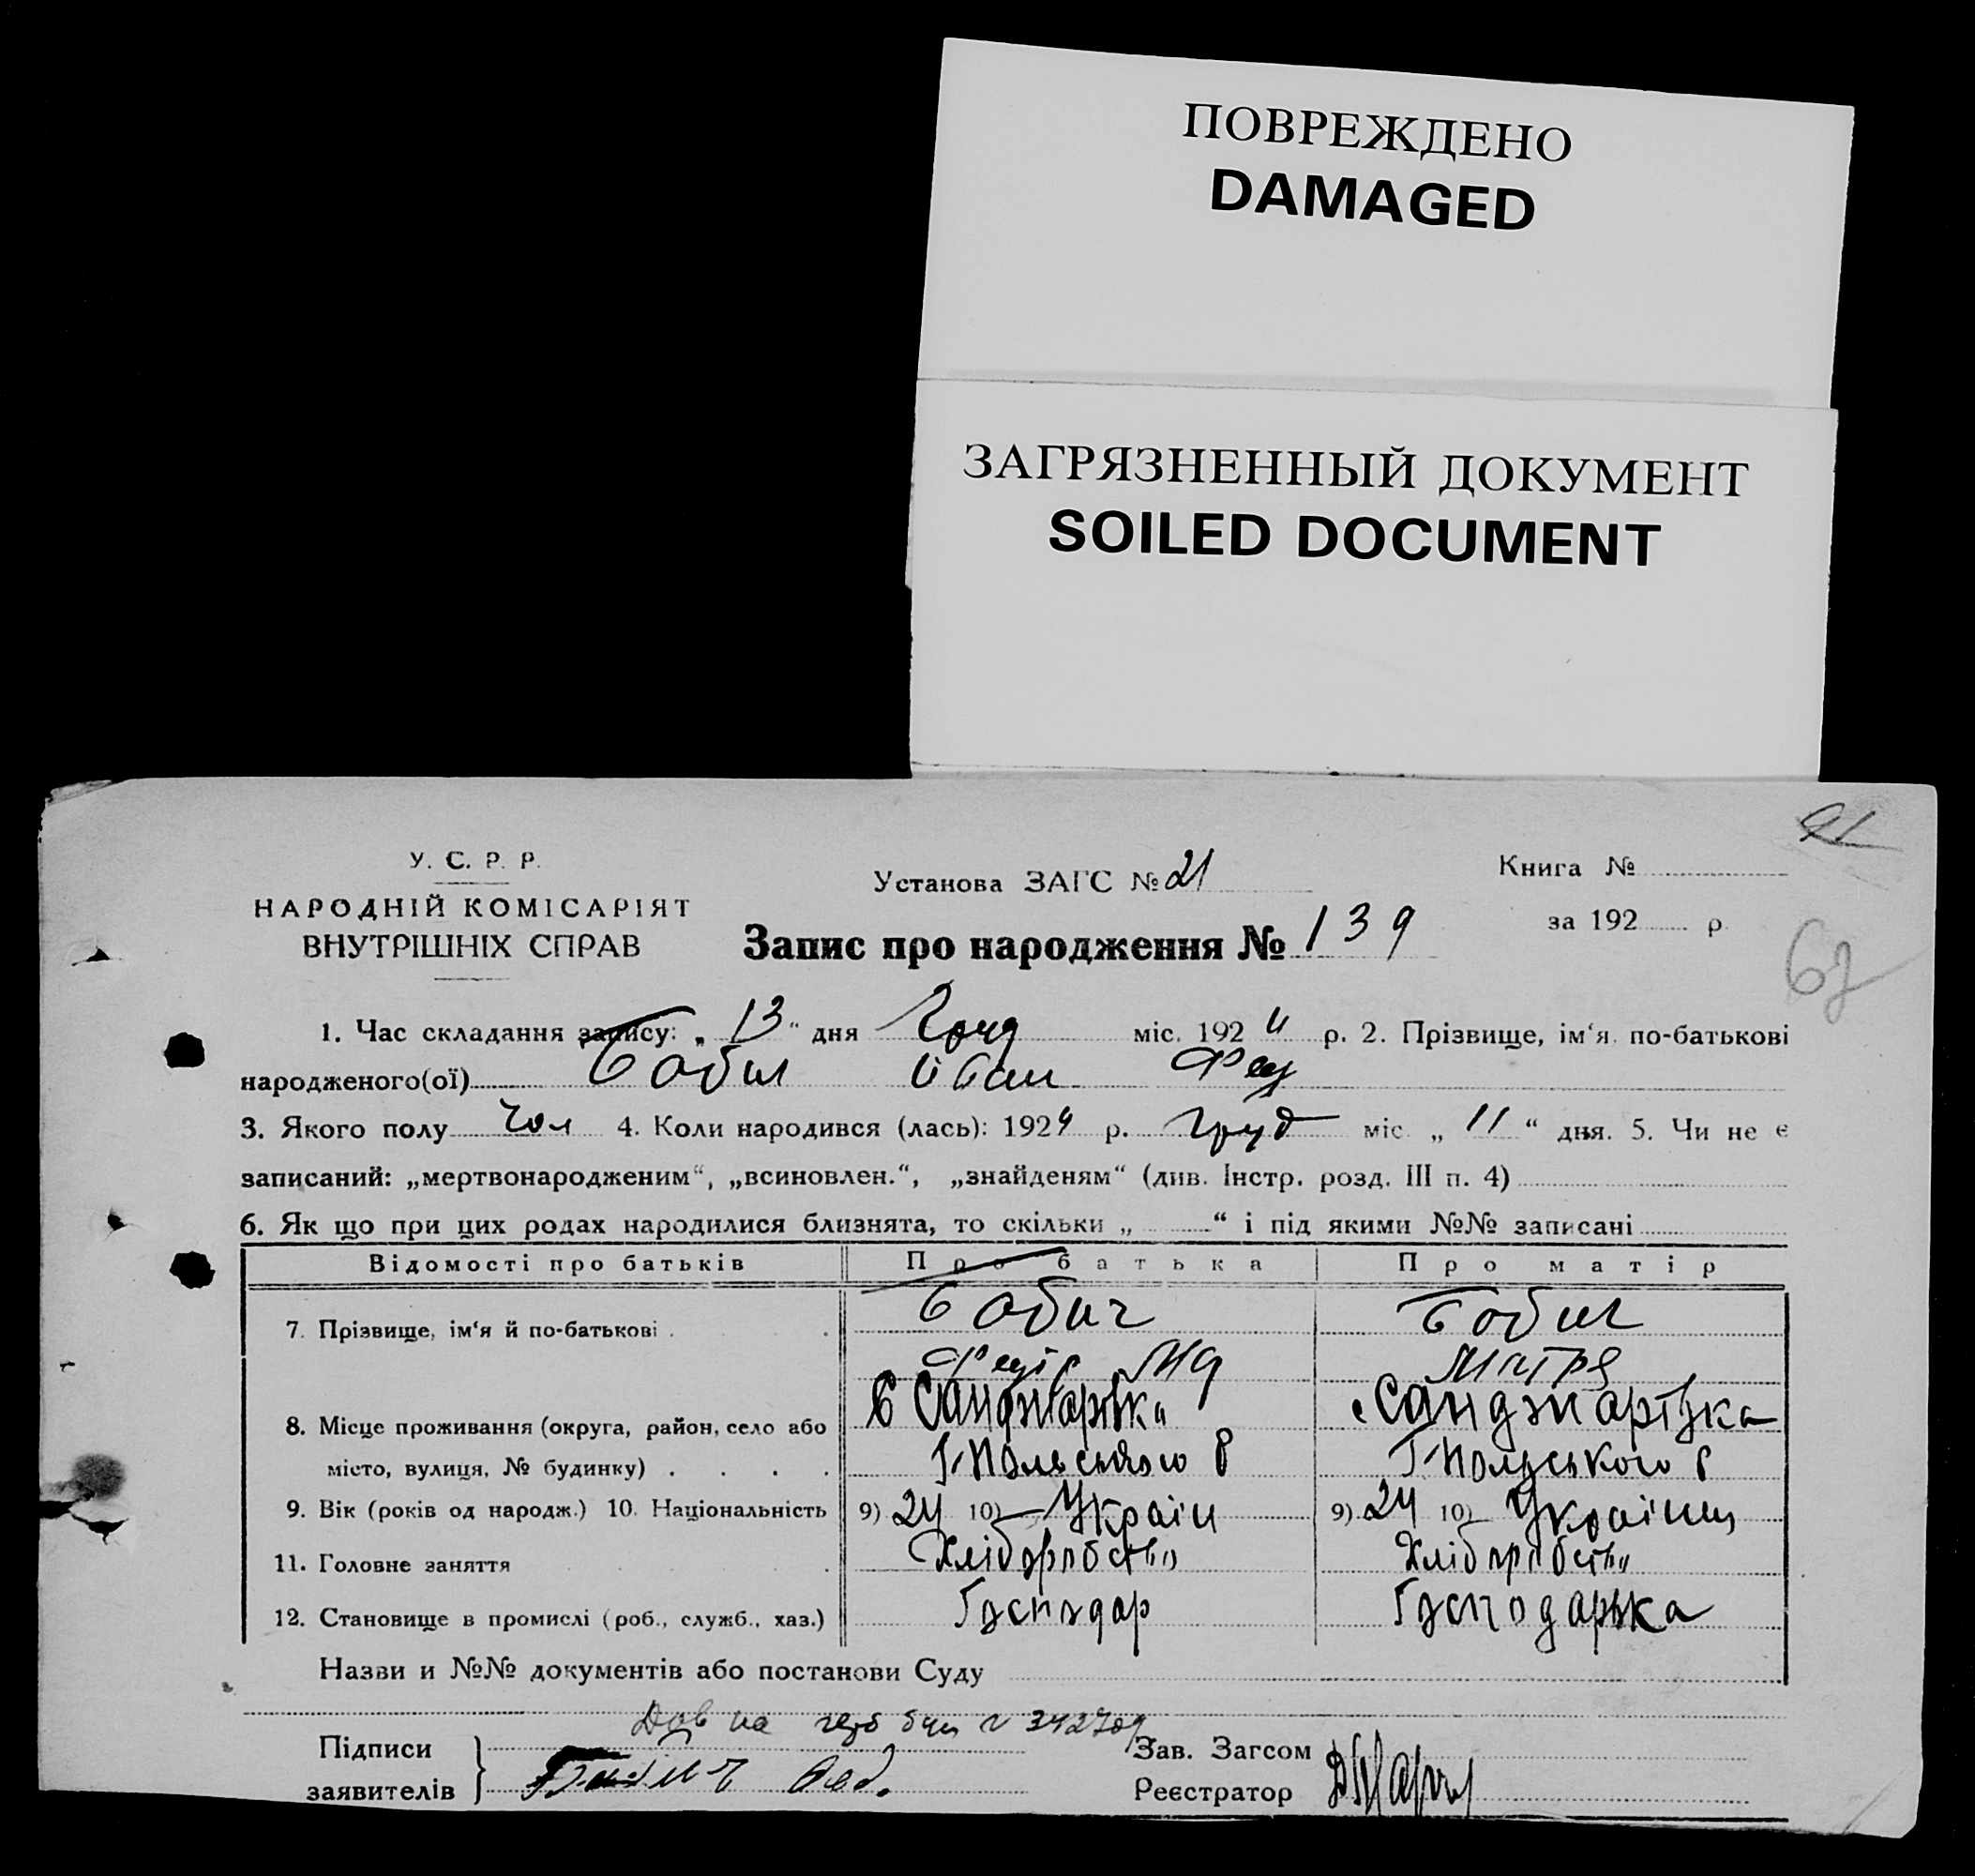 ПОВРЕЖДЕНО
DAMAGED
ЗАГРЯЗНЕННЫЙ ДОКУМЕНТ
SOILED DOCUMENT
У. С. Р. Р.
НАРОДНІЙ КОМІСАРІЯТ
ВНУТРІШНІХ СПРАВ
Установа ЗАГС № 21
Запис про народження № 139
Книга №
за 192 р.
1. Час складання запису: „ 13 “ дня міс. 1924 р. 2. Прізвище, ім‘я по-батькові
народженого(ої) Бабич Іван Фед
3. Якого полу чол 4. Коли народився (лась): 1924 р. груд міс. „ 11 “ дня. 5. Чи не є
записаний: „мертвонародженим“, „всиновлен.“, „знайденям“ (див. Інстр. розд. III п. 4)
6. Як що при цих родах народилися близнята, то скільки „ “ і під якими №№ записані
Відомості про батьків Про батька Про матір
7. Прізвище, ім‘я й по-батькові . . Бабич Бабич
Федір
8. Місце проживання (округа, район, село або Санджарівка Санджарівка
місто, вулиця, № будинку) . . . . Г-Польського Р Г-Польського Р
9. Вік (років од народж.) 10. Національність 9) 24 10) Україн 9) 24 10) Українц
11. Головне заняття . Хліборобство Хліборобство
12. Становище в промислі (роб., служб., хаз.) Господар Господарька
Назви и №№ документів або постанови Суду
на
Підписи Зав. Загсом
заявителів Реєстратор